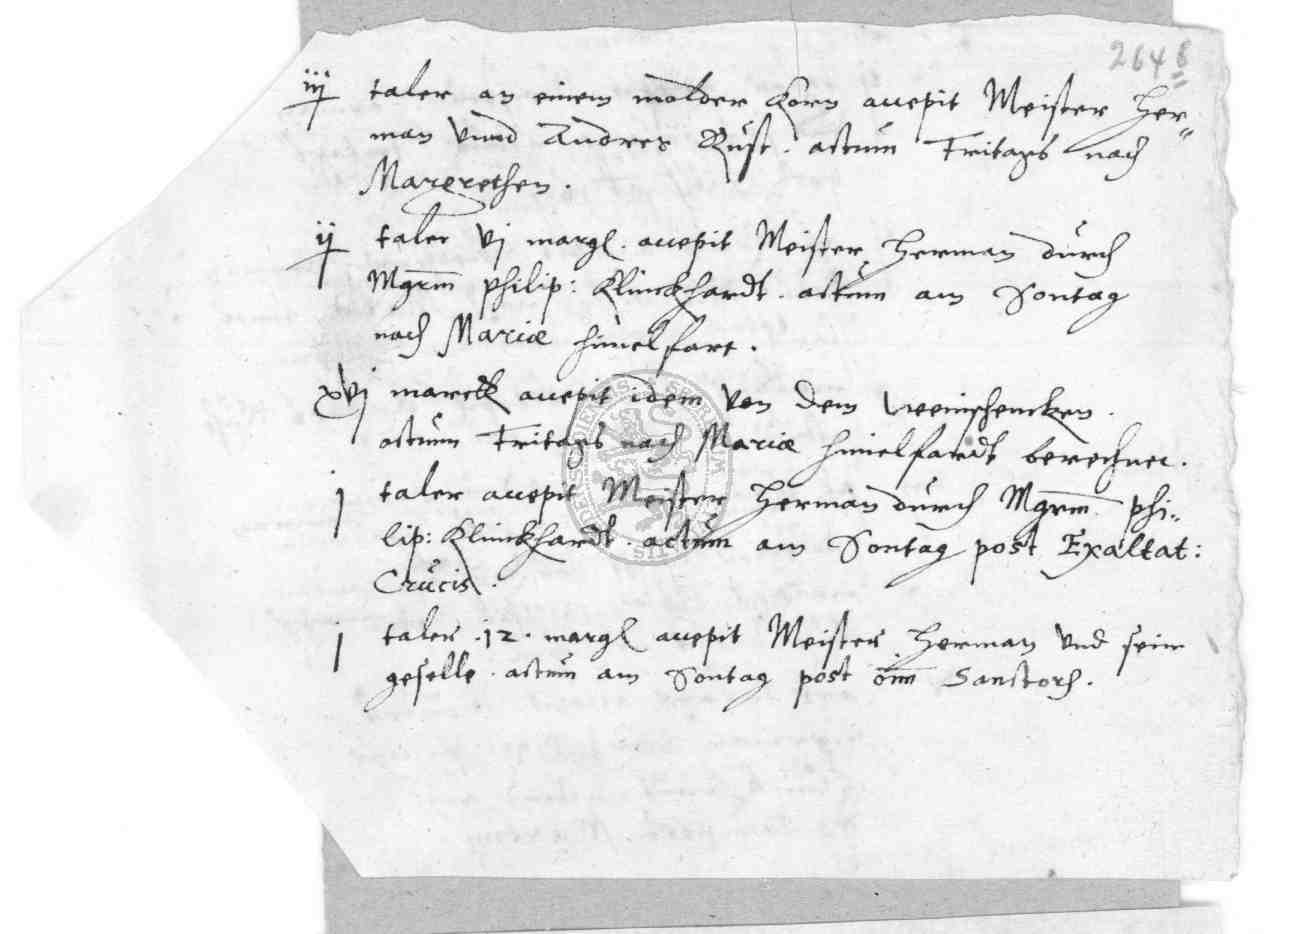 264 8
iij taler an einem molder korn accepit Meister Her-
man vnnd Andres Rust. actum Fritags nach
Margrethen.
ij taler vj margl. accepit Meister Herman durch
Mgrm philip: Klinckhardt. actum am Sontag
nach Mariæ himelfart.
xvj marck accepit idem von dem weinschencken.
actum Fritags nach Mariæ himelfardt berechnet.
j taler accepit Meister Herman durch Mgrm phi-
lip: Klinckhardt. actum am Sontag post Exaltat:
Crucis.
j taler .12. margl accepit Meister Herman vnd sein
geselle. actum am Sontag post om Sanctor.